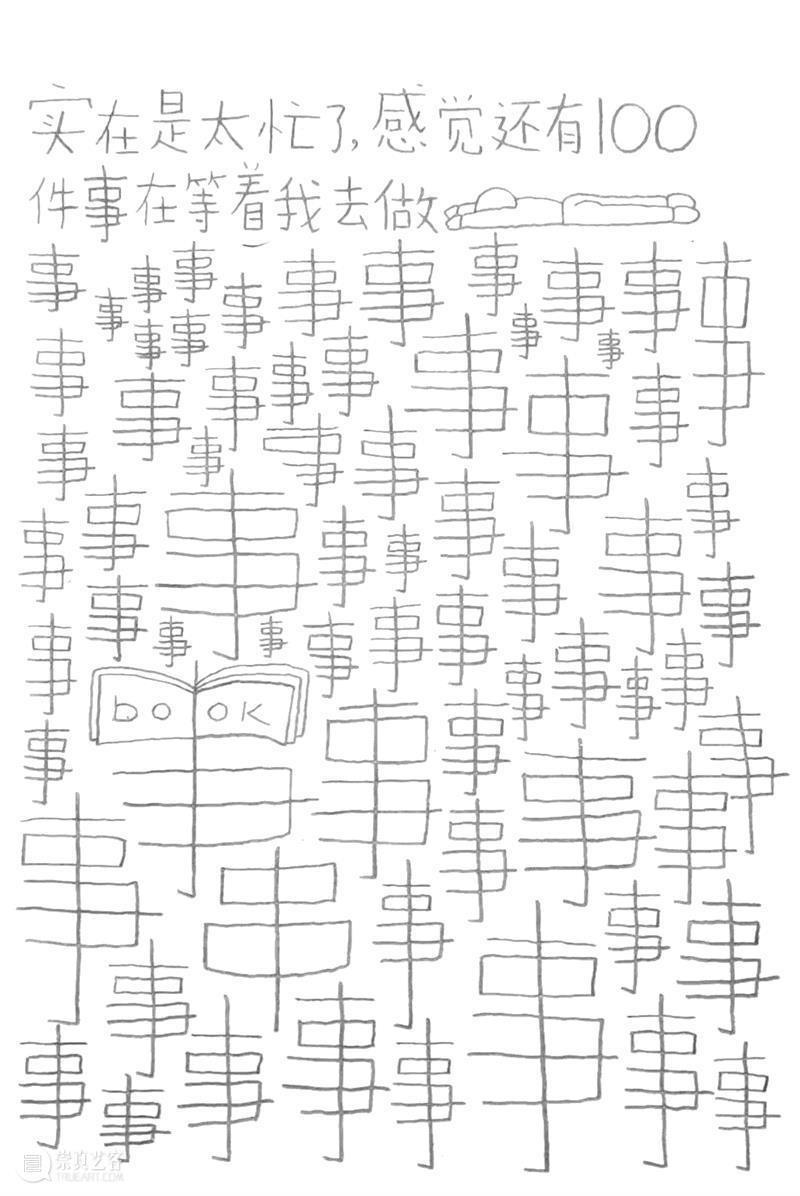 实在是太忙了，感觉还有100
件事在等着我去做
事事事事事事事事事事事事事
事事事事事事事事事事
事事事事事事
事事事事事事事事
事事事事事事事事事事事
book
事事事事事事事
事事事事事事
事事事事事事事事事
崇真艺客
TRUEART.COM